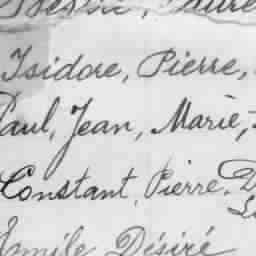 Isidore, Pierre,
Paul, Jean, Marie,
Constant, Pierre. D
Emile Désiré